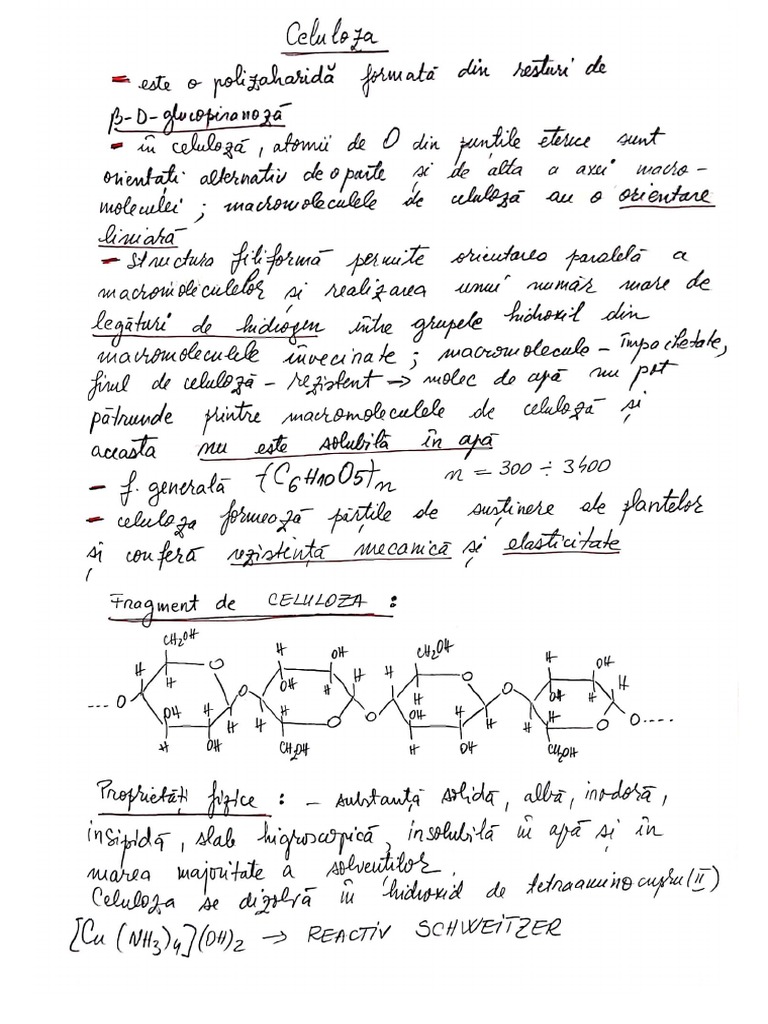 Celuloza
- este o polizaharidă formată din resturi de
β-D-glucopiranoză
- în celuloză, atomii de O din punțile eterice sunt
orientați alternativ de o parte și de alta a axei macro-
moleculei; macromoleculele de celuloză au o orientare
liniară
- structura filiformă permite orientarea paralelă a
macromoleculelor și realizarea unui număr mare de
legături de hidrogen între grupele hidroxil din
macromoleculele învecinate; macromolecule - împachetate,
firul de celuloză - rezistent → molec de apă nu pot
pătrunde printre macromoleculele de celuloză și
aceasta nu este solubilă în apă
- f. generală (C6H10O5)n n = 300 ÷ 3400
- celuloza formează părțile de susținere ale plantelor
și conferă rezistență mecanică și elasticitate
Fragment de CELULOZA :
CH2OH H OH CH2OH H OH
H H O OH H H H H O OH H H
... O OH H O H O OH H O H O O....
H OH CH2OH H OH CH2OH
Proprietăți fizice : - substanță solidă, albă, inodoră,
insipidă, slab higroscopică, insolubilă în apă și în
marea majoritate a solvenților.
Celuloza se dizolvă în hidroxid de tetraaminocupru(II)
[Cu(NH3)4](OH)2 → REACTIV SCHWEITZER